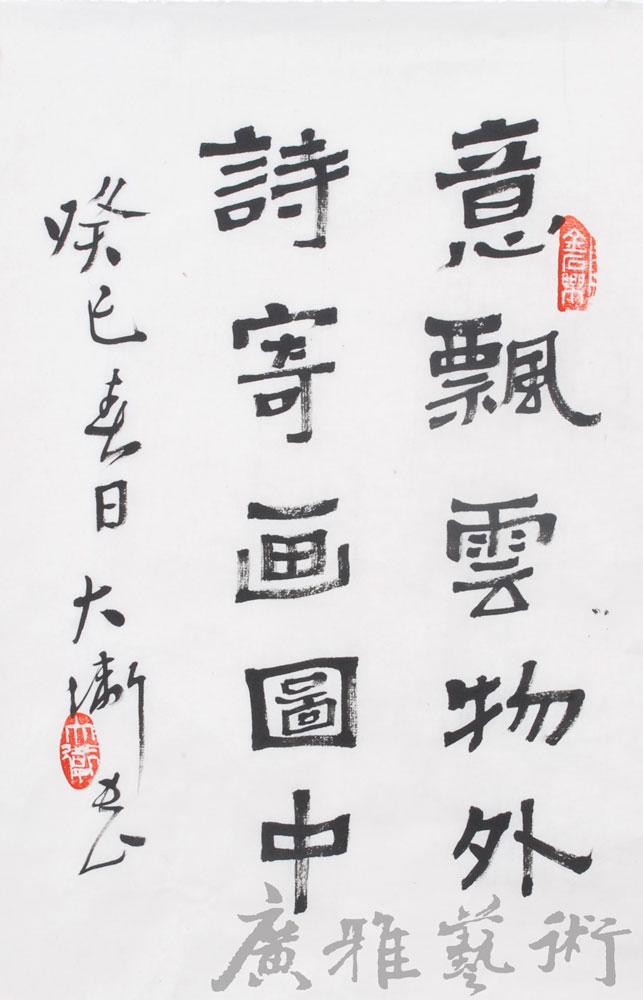 意飄雲物外
詩寄画圖中
癸巳春日大衛書
金石樂
大衛
廣雅藝術